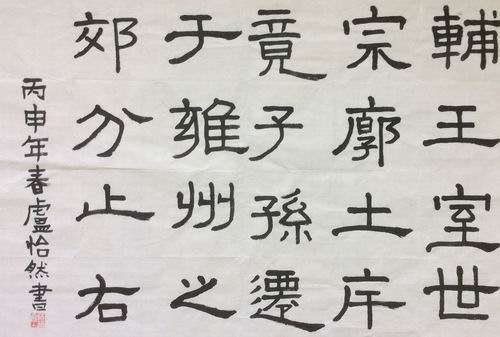 輔王室世
宗廓土斥
竟子孫遷
于雍州之
郊分止右
丙申年春盧怡然書